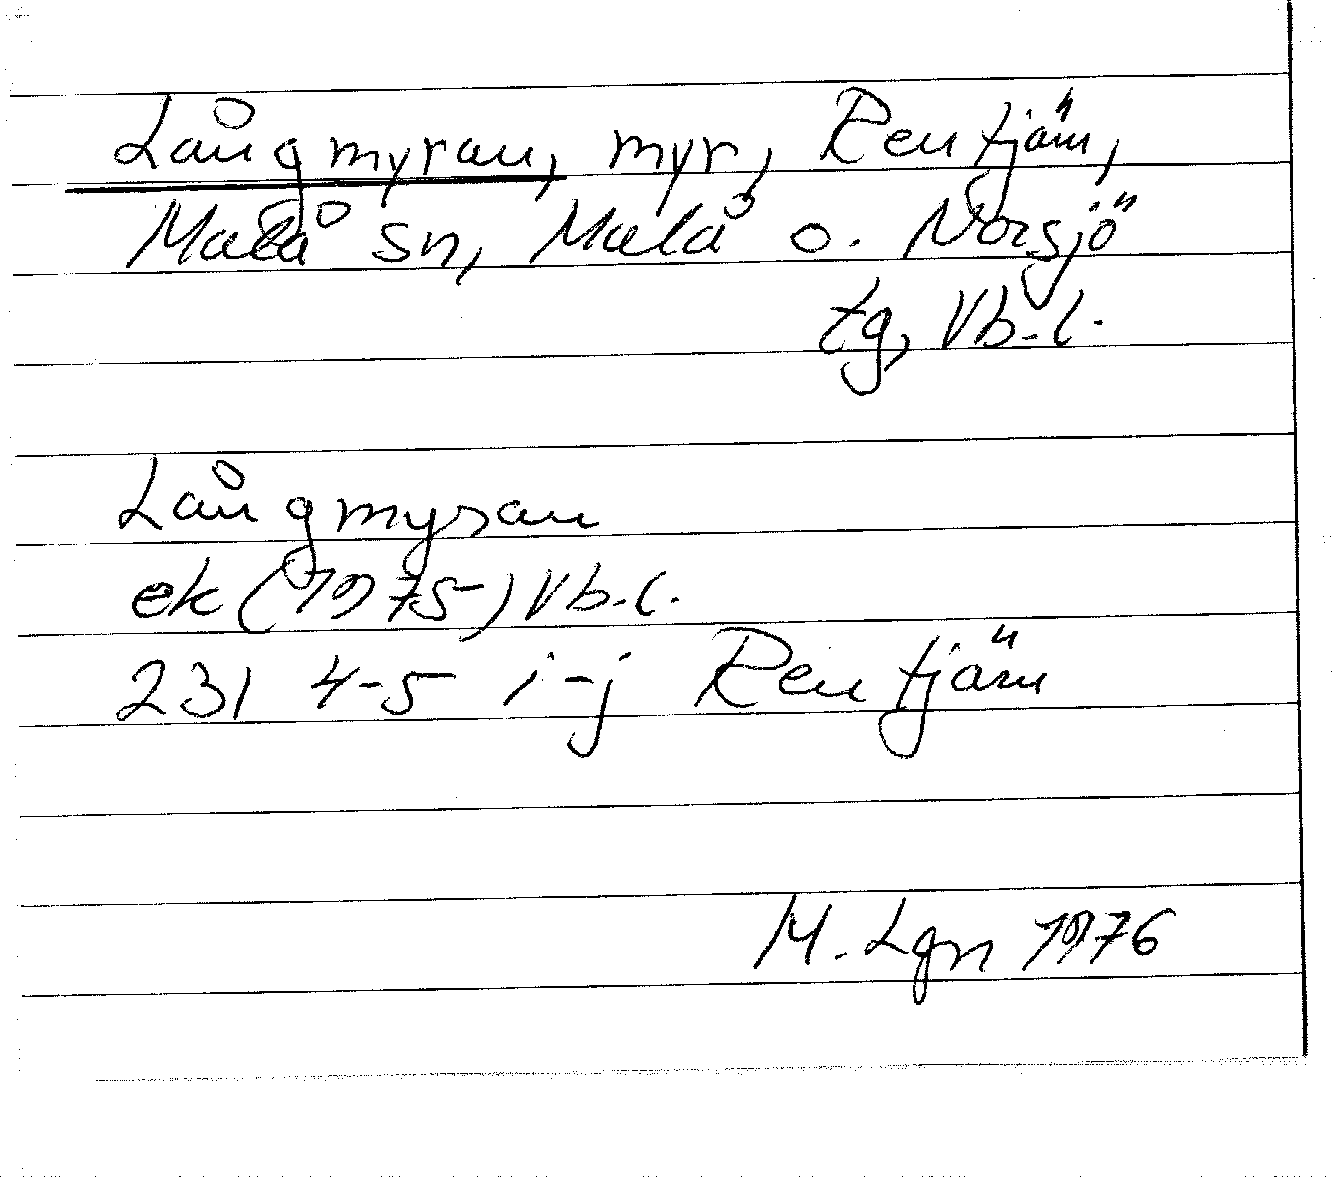 Långmyran, myr, Rentjärn,
Malå sn, Malå o. Norsjö
tg, Vb.l.
Långmyran
ek (1975) Vb.l.
231 4-5 i-j Rentjärn
M. Lgn 1976